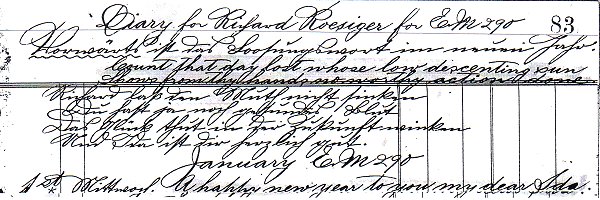 Diary for Richard Roesiger for E.M. 290 83
Vorwärts ist das Loosungswort im neuen Jahr.
Count that day lost whose low descenting sun
Shows from thy hands no worthy action done
Richard laß den Muth nicht sinken
Du hast ja noch gesundes Blut
Das Glück thut in der Zukunft winken
Und Ida ist dir herzlich gut.
January E.M. 290
1st Mittwoch. A happy new year to you my dear Ida.